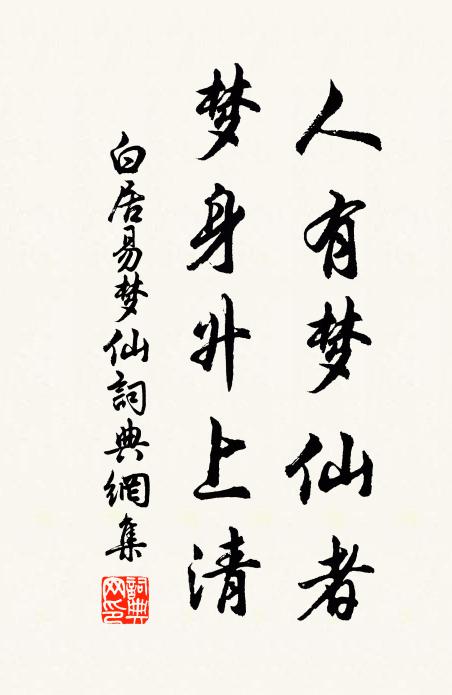 人有梦仙者
梦身升上清
白居易梦仙詞典網集
詞典網印